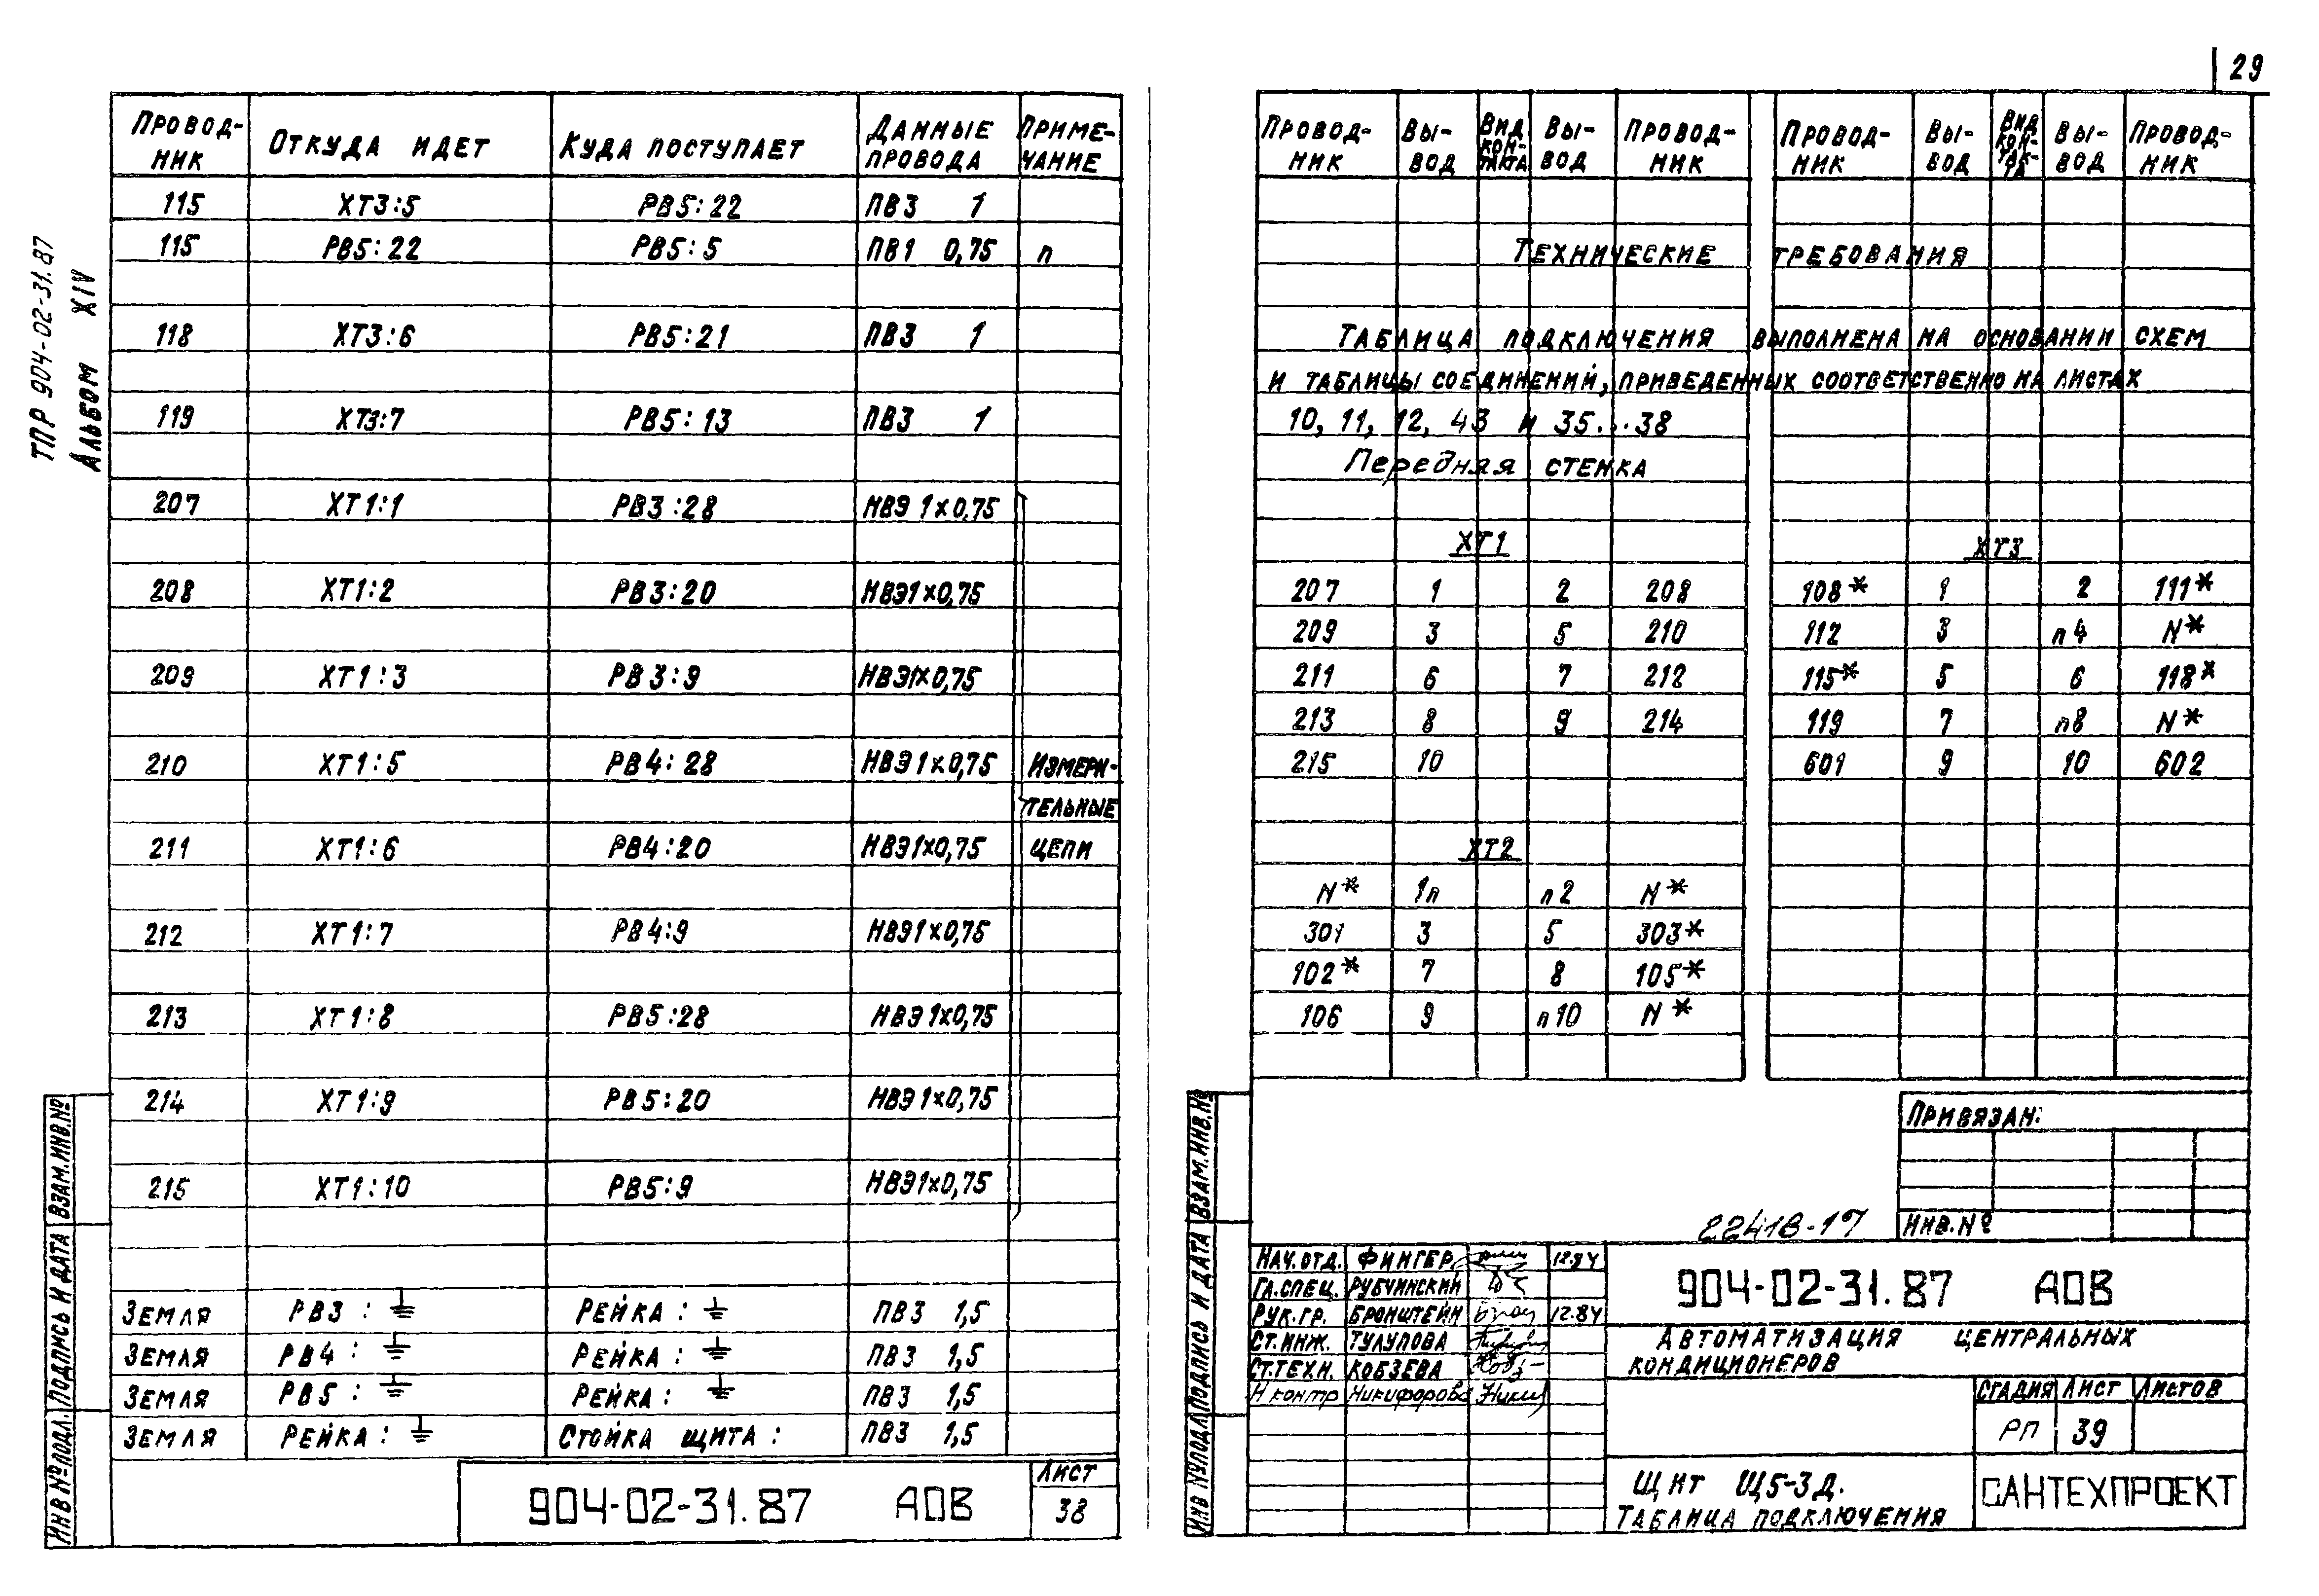 29
ТПР 904-02-31.87
Альбом XIV
Провод-ник Откуда идет Куда поступает Данные провода Приме-чание
115 ХТ3:5 РВ5:22 ПВ3 1
115 РВ5:22 РВ5:5 ПВ1 0,75 п
118 ХТ3:6 РВ5:21 ПВ3 1
119 ХТ3:7 РВ5:13 ПВ3 1
207 ХТ1:1 РВ3:28 НВЭ 1×0,75
208 ХТ1:2 РВ3:20 НВЭ1×0,75
209 ХТ1:3 РВ3:9 НВЭ1×0,75
210 ХТ1:5 РВ4:28 НВЭ1×0,75 Измери-
тельные
211 ХТ1:6 РВ4:20 НВЭ1×0,75 цепи
212 ХТ1:7 РВ4:9 НВЭ1×0,75
213 ХТ1:8 РВ5:28 НВЭ1×0,75
214 ХТ1:9 РВ5:20 НВЭ1×0,75
215 ХТ1:10 РВ5:9 НВЭ1×0,75
Земля РВ3: ⏚ Рейка: ⏚ ПВ3 1,5
Земля РВ4: ⏚ Рейка: ⏚ ПВ3 1,5
Земля РВ5: ⏚ Рейка: ⏚ ПВ3 1,5
Земля Рейка: ⏚ Стойка щита: ПВ3 1,5
Инв № подл. Подпись и дата Взам.инв.№
904-02-31.87 АОВ
Лист
38
Провод-ник Вы-вод Вид кон-такта Вы-вод Провод-ник Провод-ник Вы-вод Вид кон-так-та Вы-вод Провод-ник
Технические требования
Таблица подключения выполнена на основании схем
и таблицы соединений, приведенных соответственно на листах
10, 11, 12, 43 и 35...38
Передняя стенка
ХТ1 ХТ3
207 1 2 208 108* 1 2 111*
209 3 5 210 112 3 п4 N*
211 6 7 212 115* 5 6 118*
213 8 9 214 119 7 п8 N*
215 10 601 9 10 602
ХТ2
N* 1п п2 N*
301 3 5 303*
102* 7 8 105*
106 9 п10 N*
Привязан:
Инв.№
22418-17
Инв № подл. Подпись и дата Взам.инв.№
Нач.отд. Фингер 12.84
Гл.спец. Рубчинский
Рук.гр. Бронштейн 12.84
Ст.инж. Тулупова
Ст.техн. Кобзева
Н контр Никифорова
904-02-31.87 АОВ
Автоматизация центральных
кондиционеров
Стадия Лист Листов
РП 39
Щит Щ5-3Д.
Таблица подключения
САНТЕХПРОЕКТ